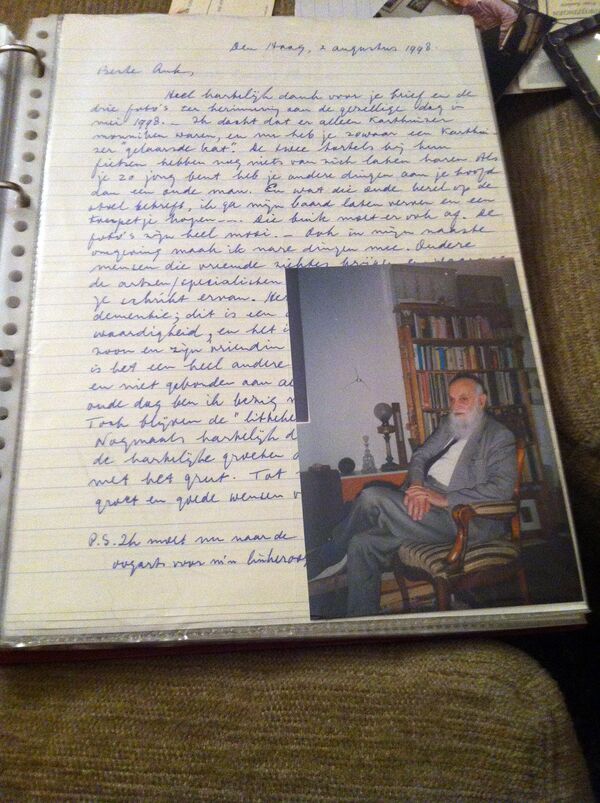 Den Haag, 2 augustus 1998.
Beste Ank,
Heel hartelijk dank voor je brief en de
drie foto's ter herinnering aan de gezellige dag in
mei 1998. — Ik dacht dat er alleen Karthuizer
monniken waren, en nu heb je zowaar een Karthui-
zer "gelaarsde kat". De twee
fietsen hebben nog niets van zich laten horen. Als
je zo jong bent heb je andere dingen aan je hoofd
dan een oude man. En wat die oude kerel op de
stoel betreft, ik ga mijn baard laten verven en een
toupetje kopen ---. Die buik moet er ook af. De
foto's zijn heel mooi. — Ook in mijn naaste
omgeving maak ik nare dingen mee. Oudere
mensen die vreemde ziektes krijgen en
de artsen/specialisten
je schrikt ervan. Het
dementie; dit is een
waardigheid, en het i
zoon en zijn vriendin
is het een heel andere
en niet gebonden aan al
oude dag ben ik bezig
Toch blijven de
Nogmaals hartelijk d
de hartelijke groeten
met het grut. Tot
groet en goede wensen v
P.S. Ik moet nu naar de
oogarts voor m'n linkeroog